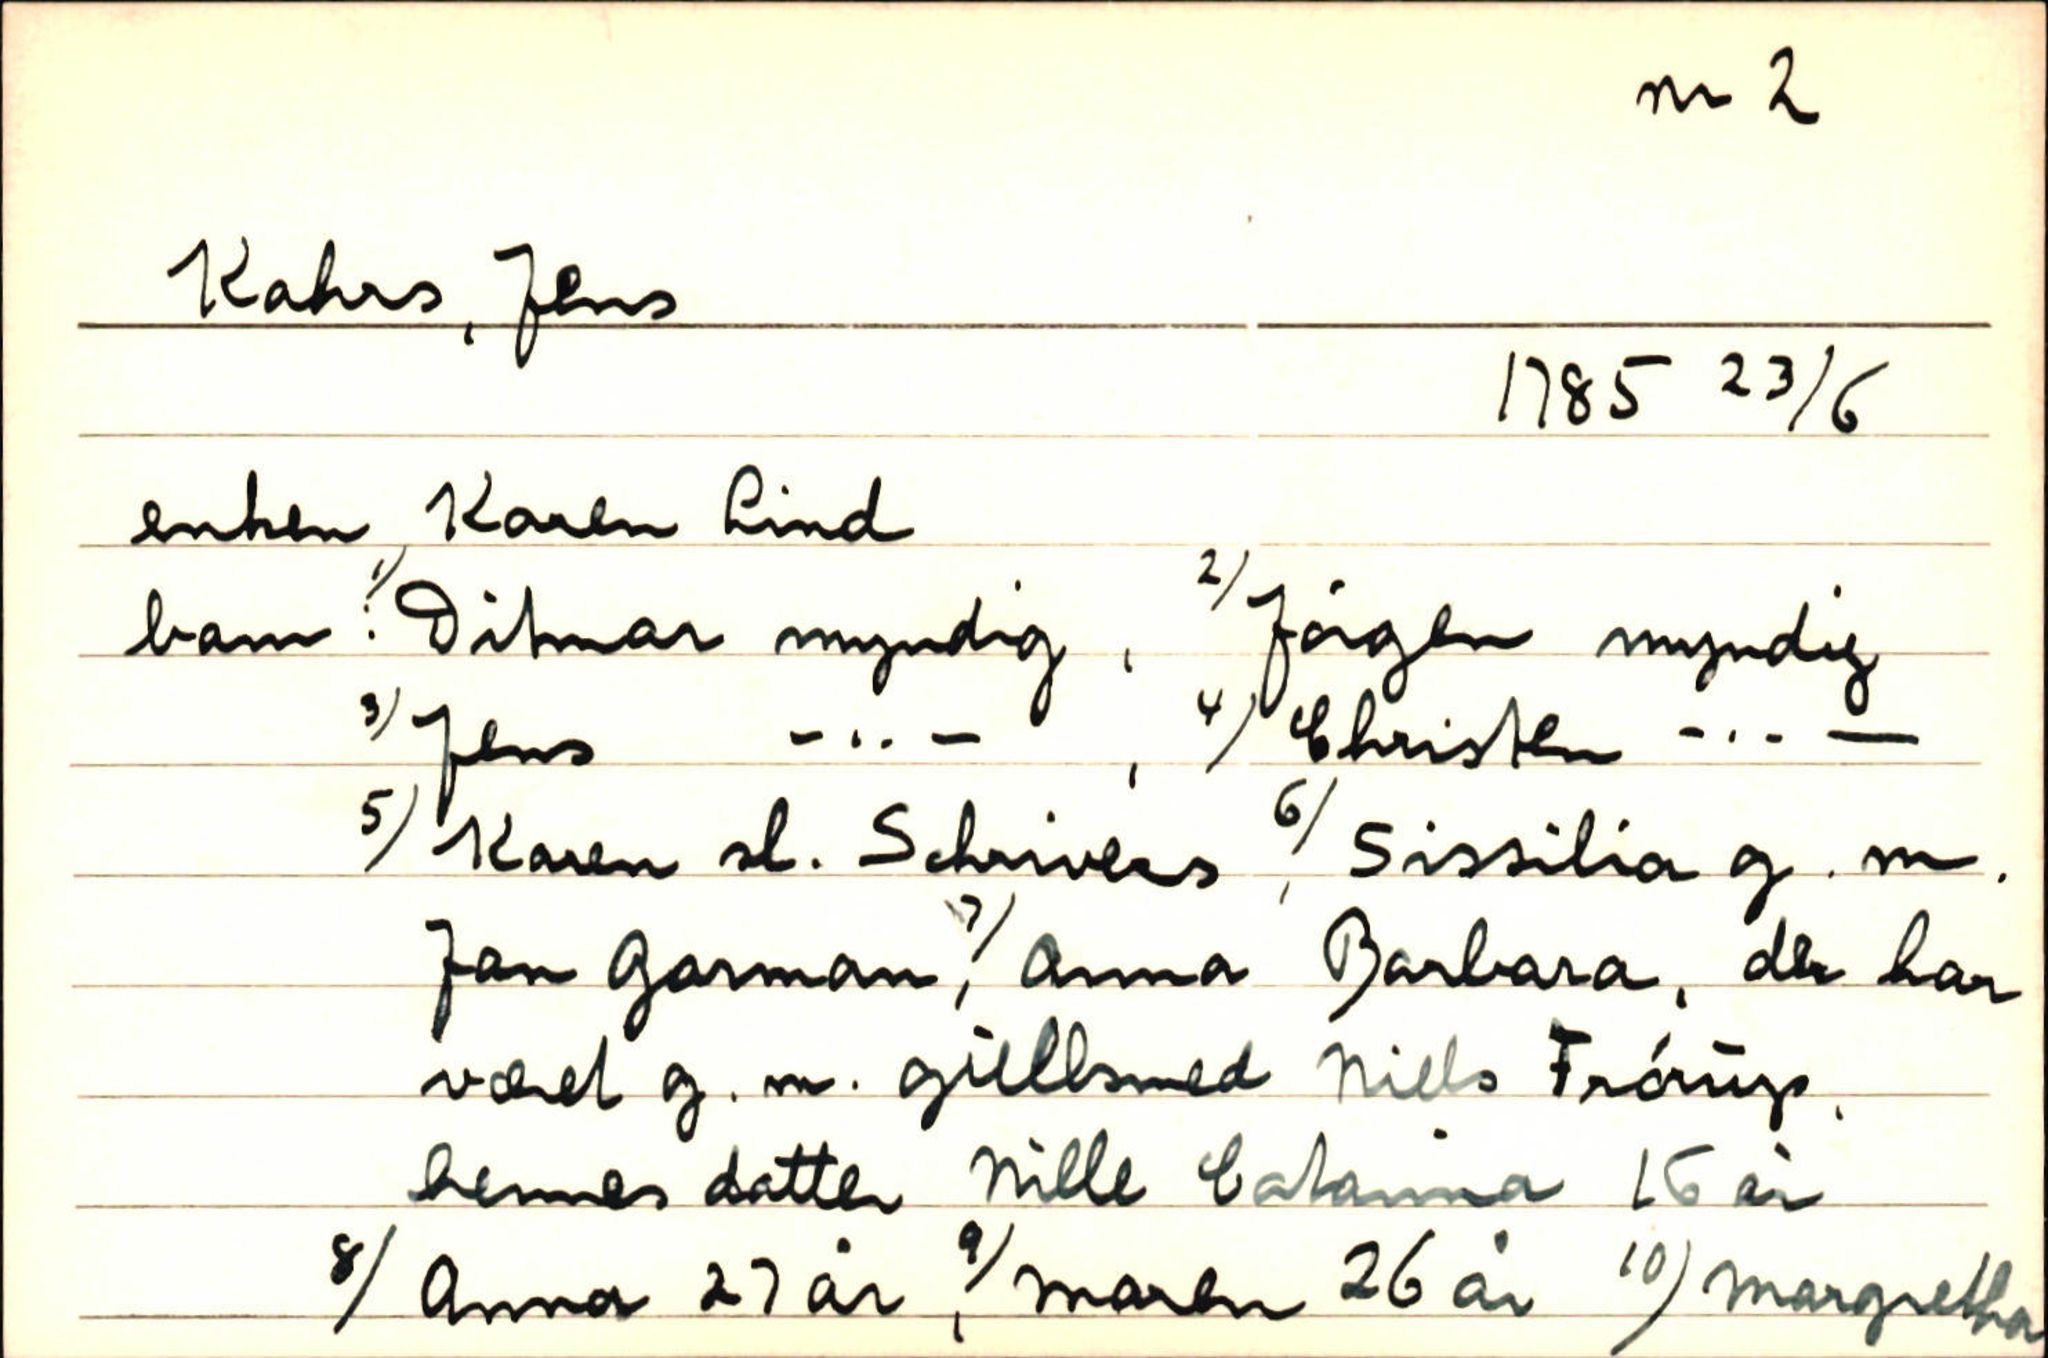 nr 2
Kahrs, Jens
1785 23/6
enken Karen Lind
barn: 1) Ditmar myndig, 2) Jörgen myndig
3) Jens -..-, 4) Christen -..-
5) Karen sl. Schrivers, 6) Sissilia g.m.
Jan Garman, 7) Anna Barbara, der har
været g.m. gullsmed Niels Frörup,
hennes datter Nille Catarina 15 år
8) Anna 27 år, 9) Maren 26 år 10) Margretha